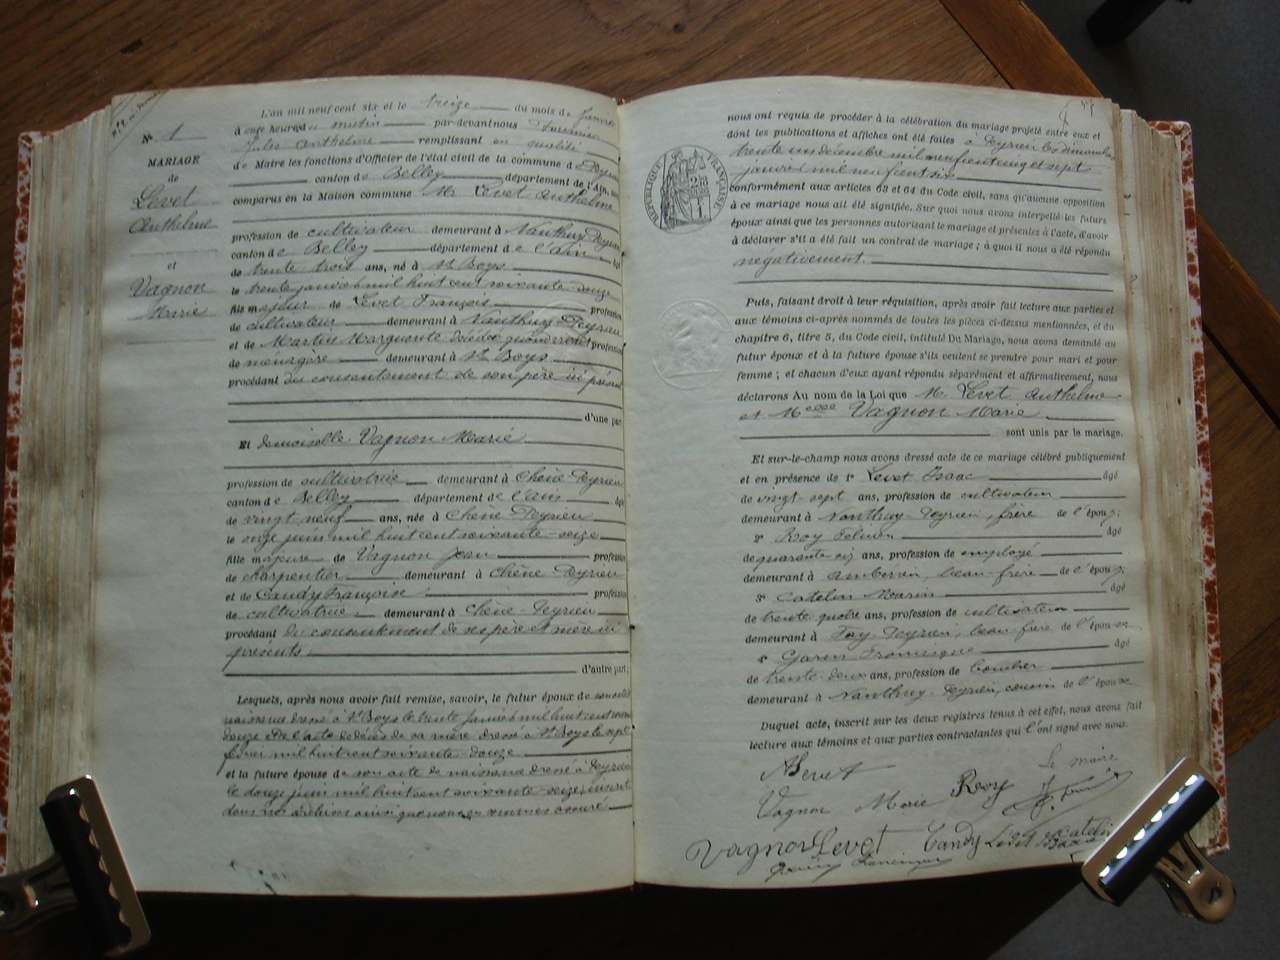 N° 1
MARIAGE
de
Levet
Anthelme
et
Vagnon
Marie
L'an mil neuf cent six et le treize du mois de Janvier
à onze heures du matin par-devant nous Fournier
Jules Anthelme remplissant en qualité
de Maire les fonctions d'Officier de l'état civil de la commune de Peyrieu
canton de Belley département de l'Ain,
comparus en la Maison commune Mr Levet Anthelme
profession de cultivateur demeurant à Nanthuy Peyrieu
canton de Belley département de l'ain âgé
de trente trois ans, né à St Boys
le trente janvier mil huit cent soixante douze
fils majeur de Levet François profession
de cultivateur demeurant à Nanthuy Peyrieu
et de Martin Marguerite décédée quand vivait profession
de ménagère demeurant à St Boys
procédant du consentement de son père ici présent
d'une part
Et demoiselle Vagnon Marie
profession de cultivatrice demeurant à Chêne Peyrieu
canton de Belley département de l'ain âgé
de vingt neuf ans, née à Chêne Peyrieu
le onze juin mil huit cent soixante-seize
fille majeure de Vagnon Jean profession
de charpentier demeurant à Chêne Peyrieu
et de Candy Françoise profession
de cultivatrice demeurant à Chêne-Peyrieu
procédant du consentement de ses père et mère ici
présents
d'autre part;
Lesquels, après nous avoir fait remise, savoir, le futur époux de son acte de
naissance dressé à St Boys le trente janvier mil huit cent soixante
douze et de l'acte de décès de sa mère dressé à St Boys le sept
février mil huit cent soixante-douze
et la future épouse de son acte de naissance dressé à Peyrieu
le douze juin mil huit cent soixante-seize, inscrit
dans nos archives ainsi que nous en sommes assuré
nous ont requis de procéder à la célébration du mariage projeté entre eux et
dont les publications et affiches ont été faites à Peyrieu les dimanches
trente un décembre mil neuf cent cinq et sept
janvier mil neuf cent six
conformément aux articles 63 et 64 du Code civil, sans qu'aucune opposition
à ce mariage nous ait été signifiée. Sur quoi nous avons interpellé les futurs
époux ainsi que les personnes autorisant le mariage et présentes à l'acte, d'avoir
à déclarer s'il a été fait un contrat de mariage; à quoi il nous a été répondu
négativement.
RÉPUBLIQUE FRANÇAISE
Puis, faisant droit à leur réquisition, après avoir fait lecture aux parties et
aux témoins ci-après nommés de toutes les pièces ci-dessus mentionnées, et du
chapitre 6, titre 5, du Code civil, intitulé Du Mariage, nous avons demandé au
futur époux et à la future épouse s'ils veulent se prendre pour mari et pour
femme; et chacun d'eux ayant répondu séparément et affirmativement, nous
déclarons Au nom de la Loi que Mr Levet Anthelme
et Melle Vagnon Marie
sont unis par le mariage.
Et sur-le-champ nous avons dressé acte de ce mariage célébré publiquement
et en présence de 1° Levet Isaac âgé
de vingt-sept ans, profession de cultivateur
demeurant à Nanthuy-Peyrieu, frère de l'époux;
2° Roy âgé
de quarante six ans, profession de employé
demeurant à Ambérieu, beau-frère de l'époux;
3° Catelin Marin âgé
de trente quatre ans, profession de cultivateur
demeurant à Fay-Peyrieu, beau frère de l'épouse
4° Garin Francisque âgé
de trente-deux ans, profession de boucher
demeurant à Nanthuy-Peyrieu, cousin de l'épouse
Duquel acte, inscrit sur les deux registres tenus à cet effet, nous avons fait
lecture aux témoins et aux parties contractantes qui l'ont signé avec nous.
A Levet
Le maire
Vagnon Marie Roy
Vagnon Levet Candy Levet Isaac Catelin